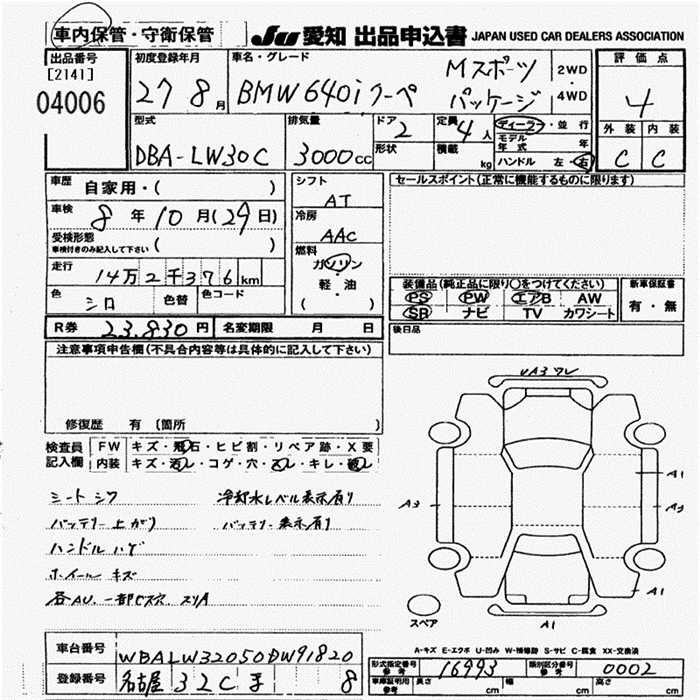 車内保管・守衛保管
JU 愛知 出品申込書 JAPAN USED CAR DEALERS ASSOCIATION
出品番号
[2141]
04006
初度登録年月
27 8 月
車名・グレード
BMW 640i クーペ
Mスポーツ
パッケージ
2WD
4WD
評価点
4
外装 内装
C C
型式
DBA-LW30C
排気量
3000 cc
ドア
2
形状
定員
4 人
積載
kg
ディーラー・並行
モデル年式 年
ハンドル 左・右
車歴
自家用・( )
車検
8 年 10 月 (29 日)
受検形態
車検付きのみ記入して下さい ( )
走行
14万2千376 km
色
シロ
色替
色コード
シフト
AT
冷房
AAC
燃料
ガソリン
軽・油
( ・ )
セールスポイント(正常に機能するものに限ります)
装備品(純正品に限り○をつけてください)
PS PW エアB AW
SR ナビ TV カワシート
新車保証書
有・無
後日品
R券 23,830 円 名変期限 月 日
注意事項申告欄(不具合内容等は具体的に記入して下さい)
修復歴 有 (箇所 )
検査員
記入欄
FW キズ・飛石・ヒビ割・リペア跡・X要
内装 キズ・汚レ・コゲ・穴・スレ・キレ・破レ
シートシワ 冷却水レベル表示有り
バッテリー上がり バッテリー表示有り
ハンドルハゲ
ホイールキズ
各AU.一部C穴
A3 ワレ
A3
A1
A3
A1
A1
スペア
A-キズ E-エクボ U-凹み W-補修跡 S-サビ C-腐食 XX-交換済
車台番号 WBALW32050DW91820
登録番号 名古屋 32 8
形式指定番号
参考
16993
類別区分番号
参考
0002
車庫証明用
参考
長さ cm 幅 cm 高さ cm